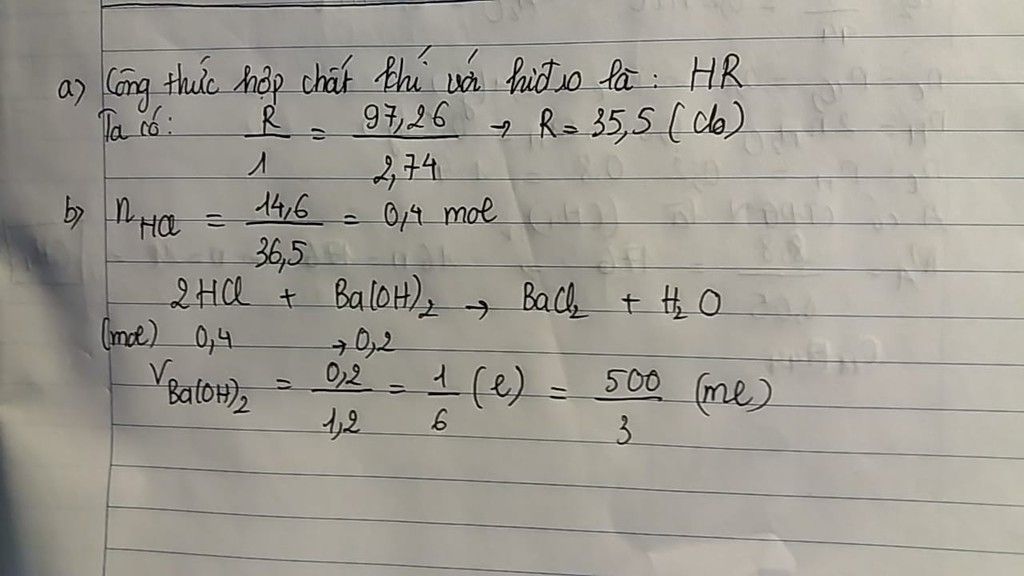 a) Công thức hợp chất khí với hiđro là: HR
Ta có: R/1 = 97,26/2,74 → R = 35,5 (clo)
b) nHCl = 14,6/36,5 = 0,4 mol
2HCl + Ba(OH)₂ → BaCl₂ + H₂O
(mol) 0,4 → 0,2
VBa(OH)₂ = 0,2/1,2 = 1/6 (l) = 500/3 (ml)